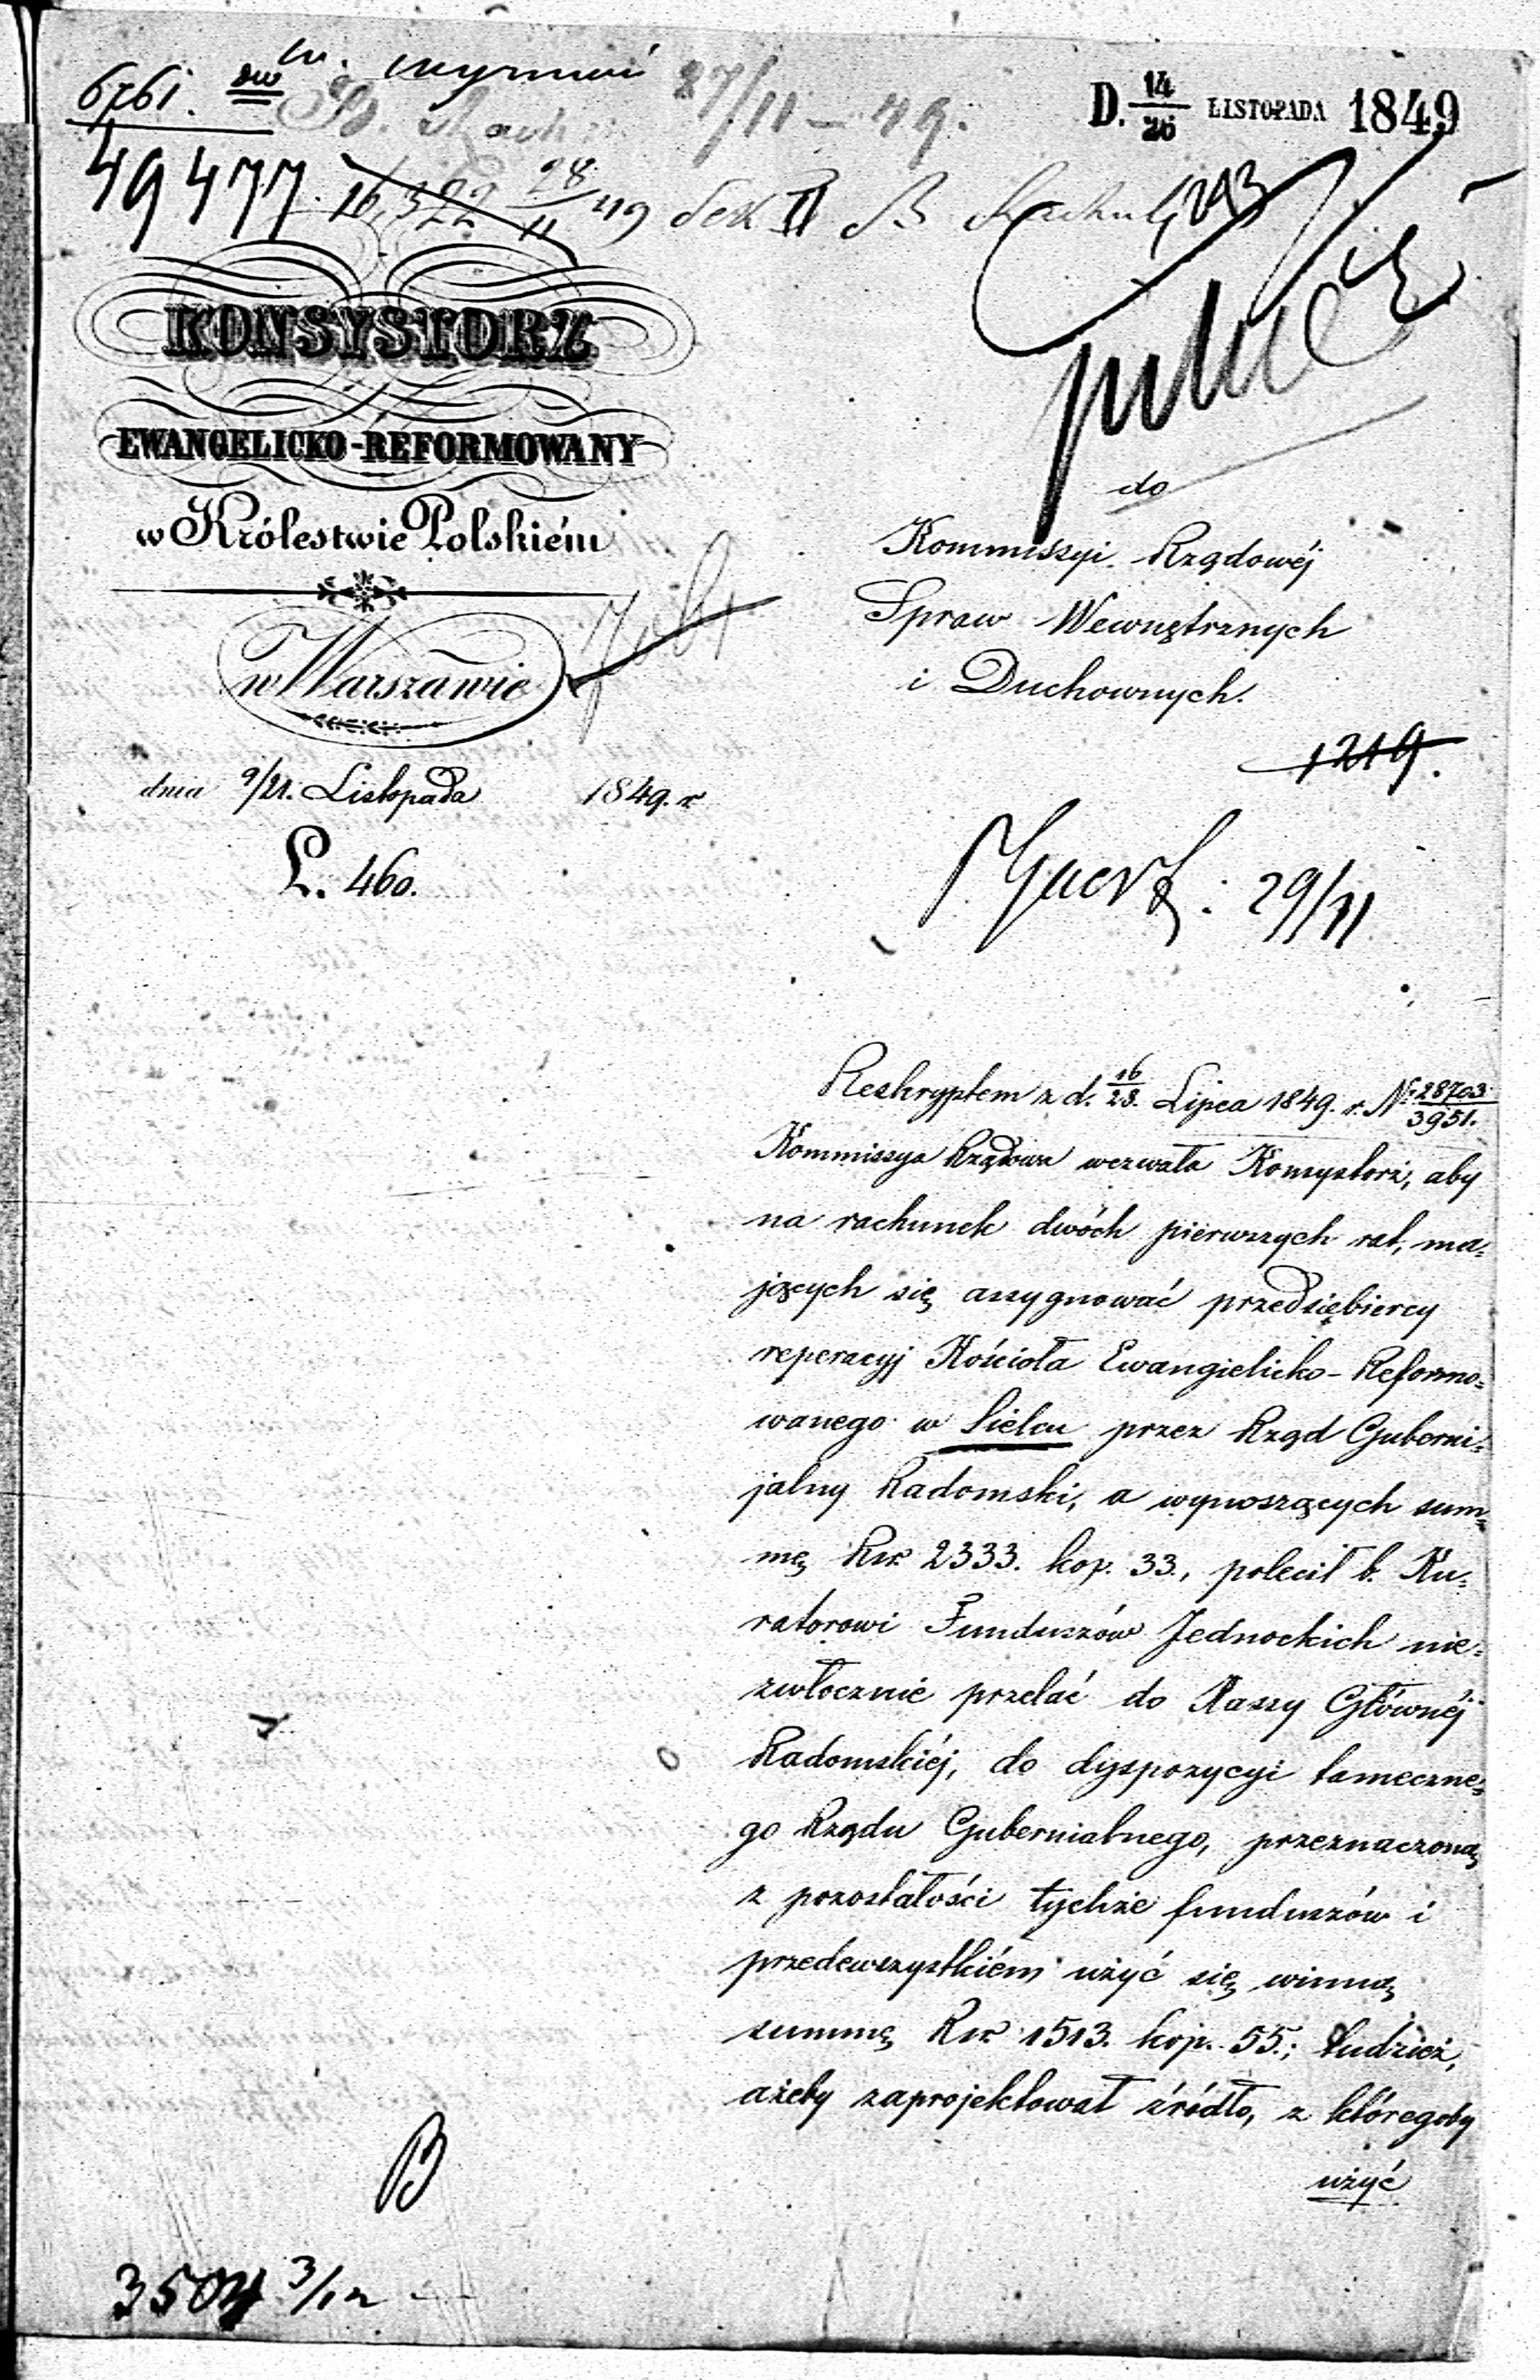 6761.
27/11 – 49.
D. 14/26 LISTOPADA 1849
49477
16,322 28/11 49 Sek II B
KONSYSTORZ
EWANGELICKO-REFORMOWANY
w Królestwie Polskiém
w Warszawie
dnia 9/21. Listopada 1849. r
L. 460.
pilne
do
Kommissyi Rządowéj
Spraw Wewnętrznych
i Duchownych.
1219.
29/11
Reskryptem z d. 16/28. Lipca 1849. r. No 28703/3951.
Kommissya Rządowa wezwała Konsystorz, aby
na rachunek dwóch pierwszych rat, ma-
jących się assygnować przedsiębiercy
reperacyj Kościoła Ewangielicko-Reformo-
wanego w Sielcu przez Rząd Guberni-
jalny Radomski, a wynoszących sum-
mę Rsr. 2333. kop. 33., polecił b. Ku-
ratorowi Funduszów Jednockich nie-
zwłocznie przelać do Kassy Głównéj
Radomskiéj, do dyspozycyi tameczne-
go Rządu Gubernialnego, przeznaczoną
z pozostałości tychże funduszów i
przedewszystkiém użyć się winną
summę Rsr. 1513. kop. 55.; tudzież,
ażeby zaprojektował źródło, z któregoby
użyć
B
3504 3/12